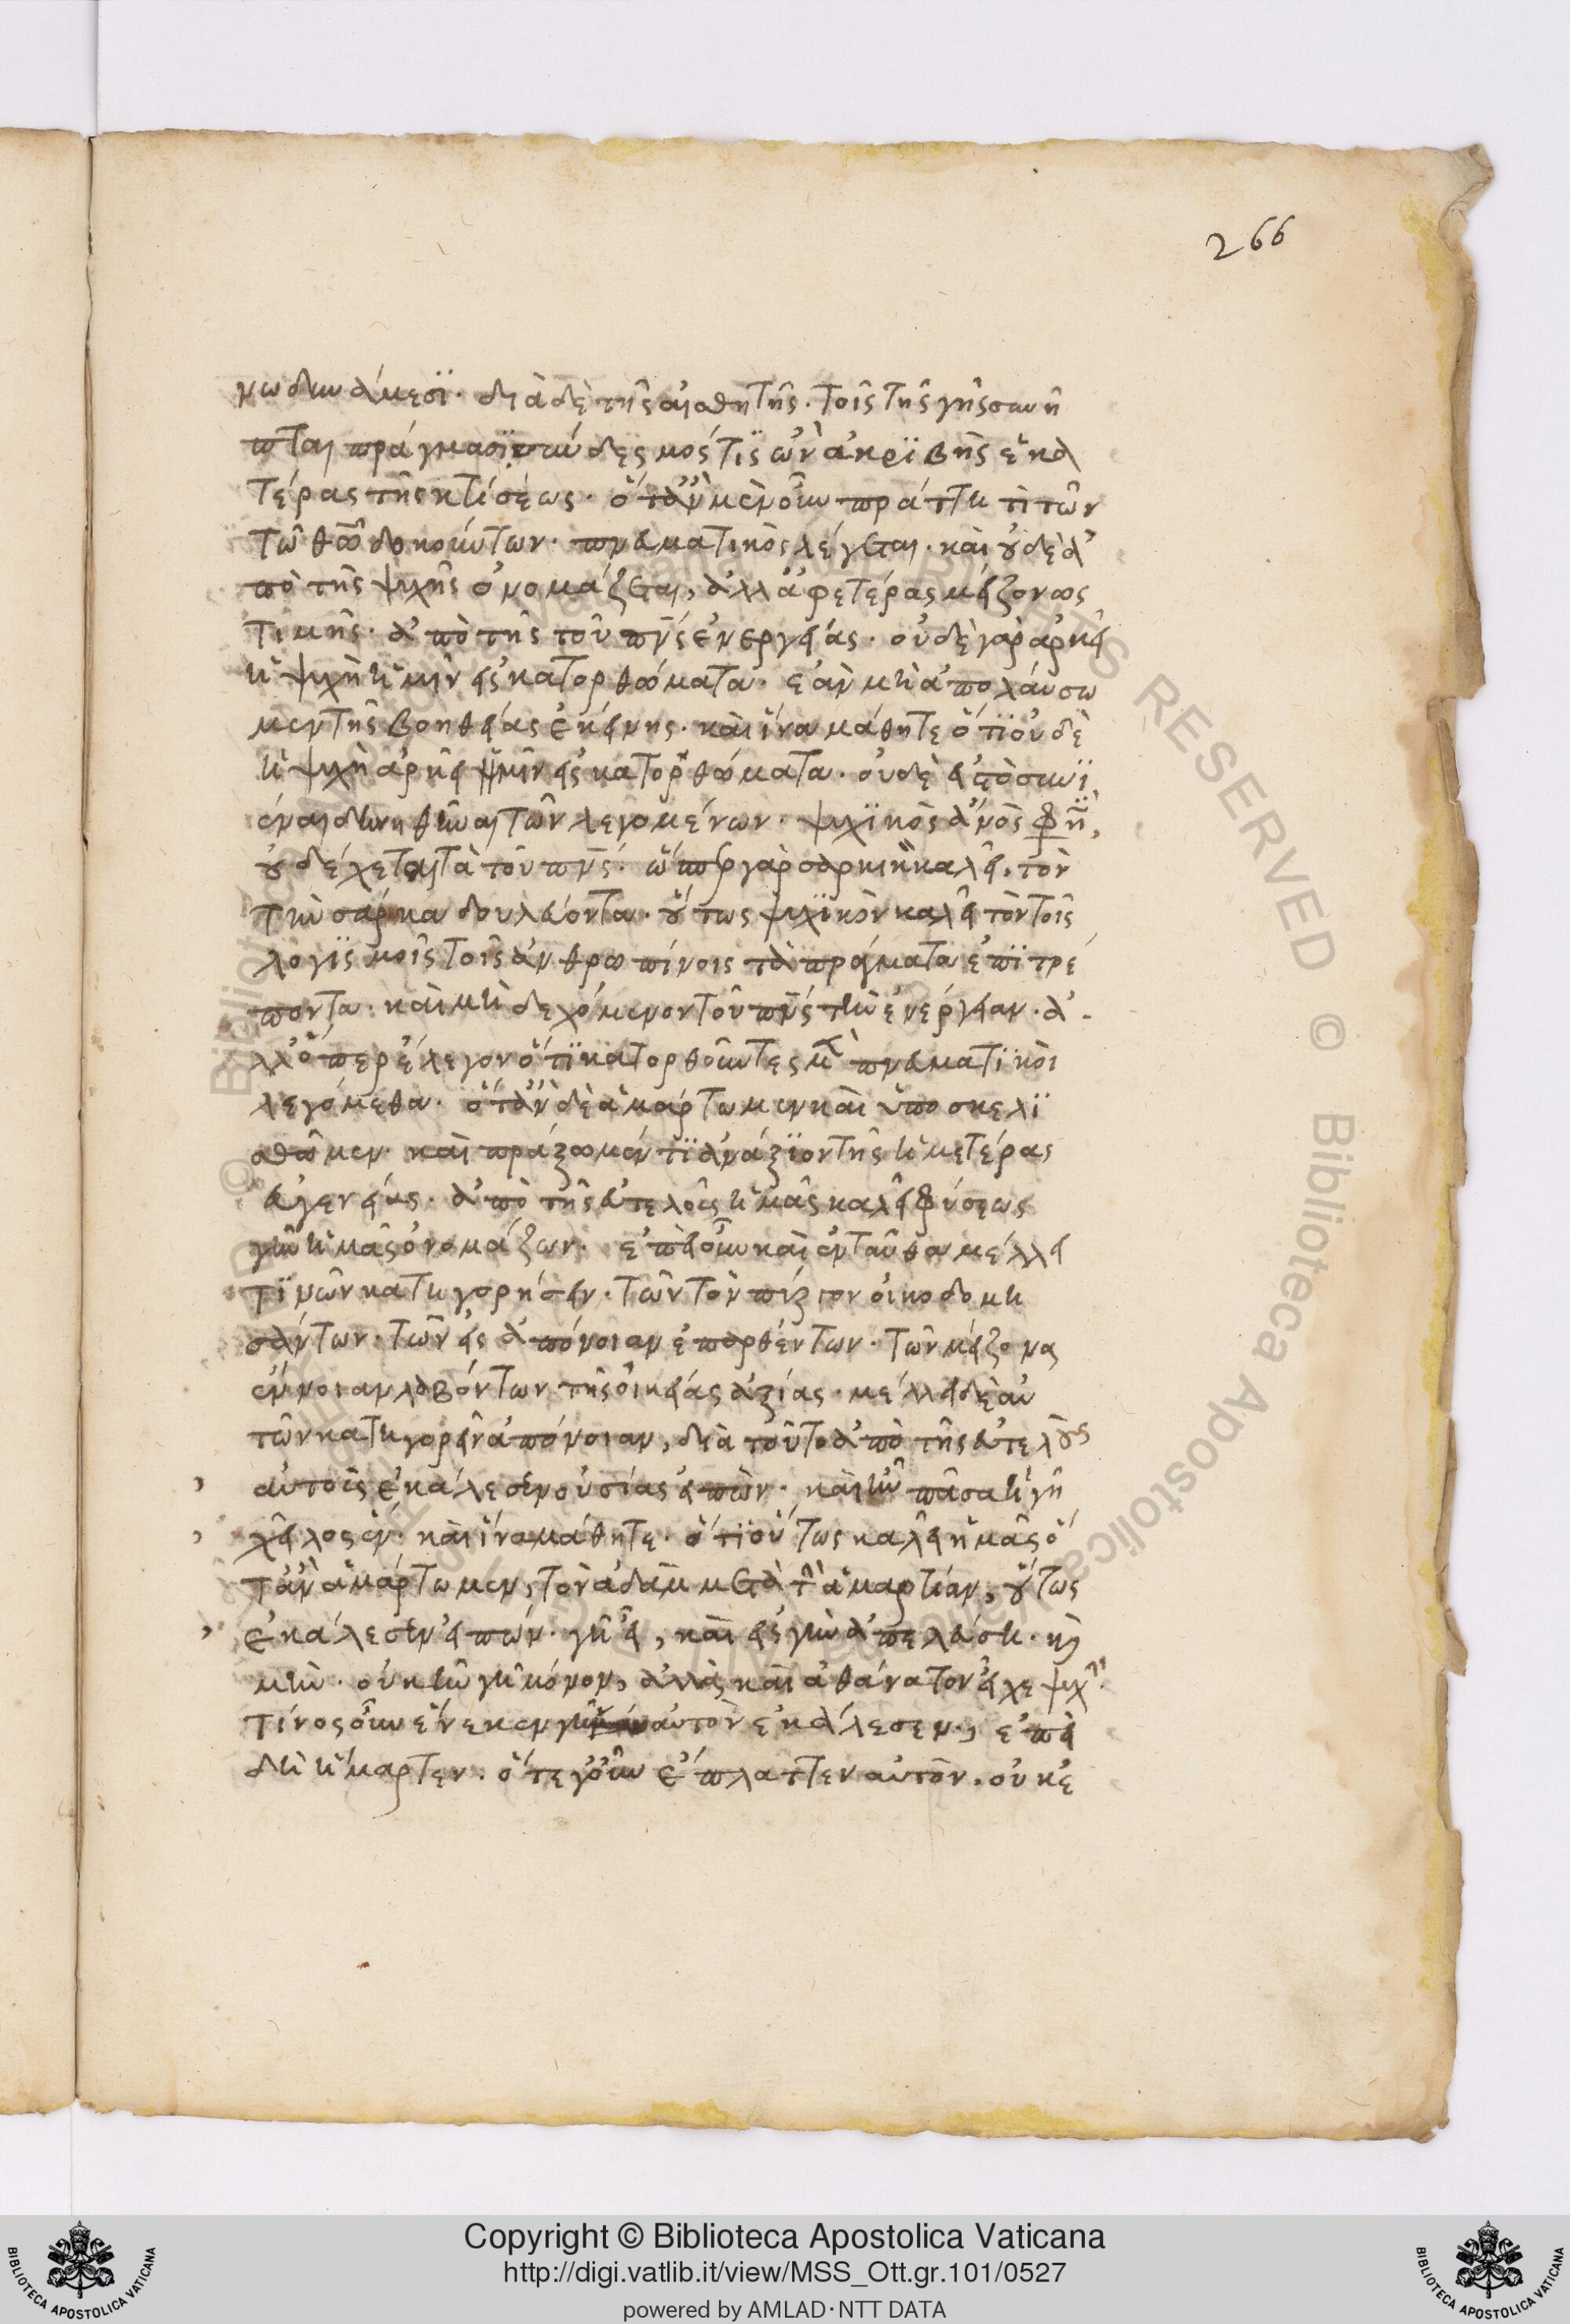 266
νω δυνάμεσϊ· διὰ δὲ τῆς αἰσθητῆς· τοῖς τῆς γῆς συνῆ
πται πράγμασϊ σύνδεσμός τίς ὢν ἀκρϊβὴς ἑκα
τέρας τῆς κτίσεως· ὅταν μὲν οὖν πράττη τὶ τῶν
τῶ θῶ δοκούντων· πνευματικὸς λέγεται· καὶ οὐδὲ ἀ
πὸ τῆς ψυχῆς ὀνομάζεται, ἀλλ' ἀφ' ἑτέρας μείζονος
τιμῆς· ἀπὸ τῆς τοῦ πνς ἐνεργείας· οὐδὲ γὰρ ἀρκεῖ
ἡ ψυχὴ ἡμῖν εἰς κατορθώματα· ἐὰν μὴ ἀπολαύσω
μεν τῆς βοηθείας ἐκείνης· καὶ ἵνα μάθητε ὅτϊ οὐδὲ
ἡ ψυχὴ ἀρκεῖ ἡμῖν εἰς κατορθώματα· οὐδὲ εἰς τὸ συνϊ
έναι δυνηθῆναι τῶν λεγομένων· ψυχϊκὸς ἄνος φη,
οὐ δέχεται τὰ τοῦ πνς· ὥσπερ γὰρ σαρκικὸν καλεῖ, τὸν
τὴν σάρκα δουλεύοντα· οὕτως ψυχϊκὸν καλεῖ τὸν τοῖς
λογϊσμοῖς τοῖς ἀνθρωπίνοις τὰ πράγματα ἐπϊτρέ
ποντα· καὶ μὴ δεχόμενον τοῦ πνς τὴν ἐνέργειαν· ἀ
λλ' ὅπερ ἔλεγον ὅτϊ κατορθοῦντες μὲν πνευματϊκοὶ
λεγόμεθα· ὅταν δὲ ἁμάρτωμεν καὶ ὑποσκελϊ
σθῶμεν· καὶ πράξωμέν τϊ ἀνάξϊον τῆς ἡμετέρας
εὐγενείας· ἀπὸ τῆς εὐτελοῦς ἡμᾶς καλεῖ φύσεως
γῆν ἡμᾶς ὀνομάζων· ἐπεὶ οὖν καὶ ἐνταῦθα μέλλει
τϊνῶν κατηγορήσειν· τῶν τὸν πύργον οἰκοδομη
σάντων· τῶν εἰς ἀπόνοιαν ἐπαρθέντων· τῶν μείζονας
ἔννοιαν λαβόντων τῆς οἰκείας ἀξίας· μέλλει δὲ αὐ
τῶν κατηγορεῖν ἀπόνοιαν, διὰ τοῦτο ἀπὸ τῆς εὐτελοῦς
αὐτοὺς ἐκάλεσεν οὐσίας εἰπὼν· καὶ ἦν πᾶσα ἡ γῆ
χεῖλος ἕν· καὶ ἵνα μάθητε· ὅτϊ οὕτως καλεῖ ἡμᾶς ὅ
ταν ἁμάρτωμεν, τὸν ἀδὰμ μετὰ τὴν ἁμαρτίαν, οὕτως
ἐκάλεσεν εἰπών· γῆ εἶ, καὶ εἰς γῆν ἀπελεύση· καὶ
μὴν· οὐκ ἦν γῆ μόνον, ἀλλὰ καὶ ἀθάνατον εἶχε ψυχήν·
τίνος οὖν ἕνεκεν γῆν αὐτὸν ἐκάλεσεν, ἐπει
δὴ ἥμαρτεν· ὅτε γοῦν ἔπλαττεν αὐτὸν· οὐκ ἐ
Copyright © Biblioteca Apostolica Vaticana
http://digi.vatlib.it/view/MSS_Ott.gr.101/0527
powered by AMLAD·NTT DATA